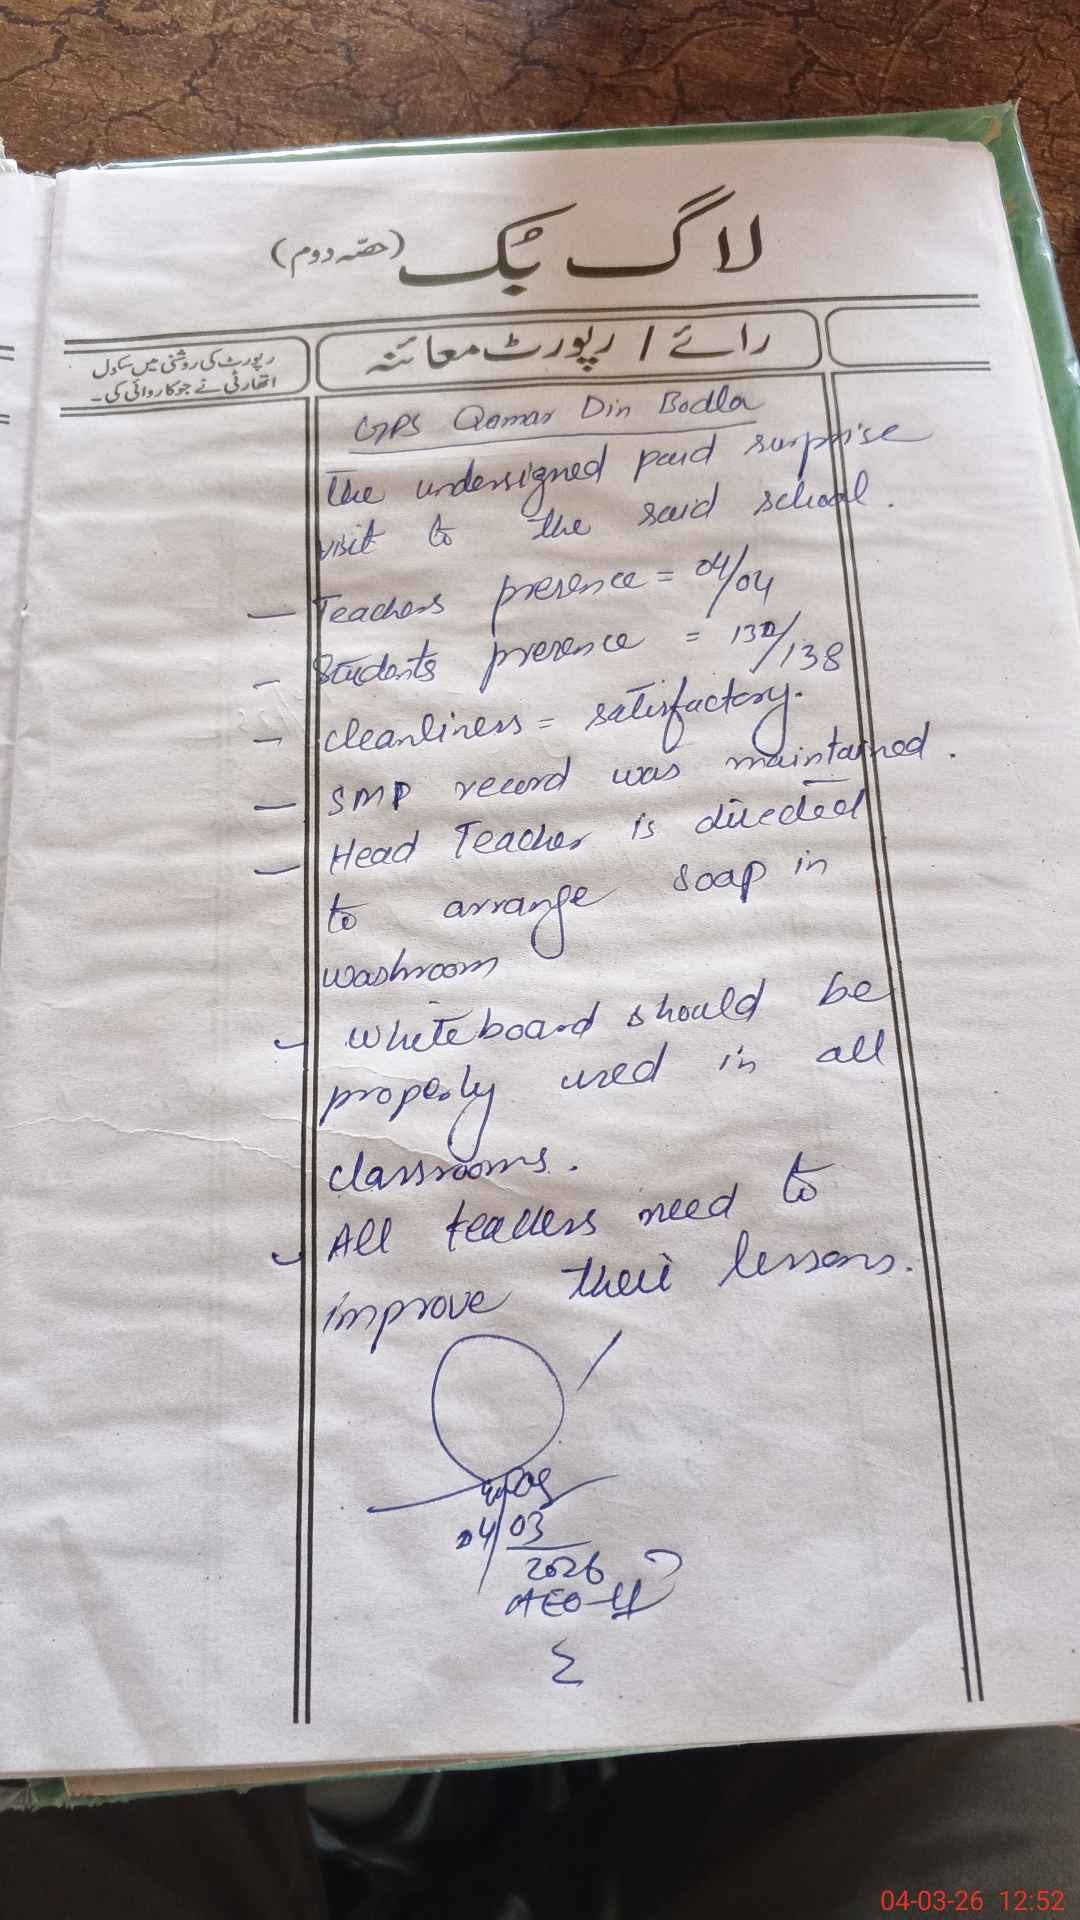 لاگ بُک (حصّہ دوم)
رائے / رپورٹ معائنہ
رپورٹ کی روشنی میں سکول
اتھارٹی نے جو کاروائی کی۔
GPS Qamar Din Bodla
The undersigned paid surprise
visit to the said school.
— Teachers presence = 04/04
— Students presence = /138
— cleanliness = satisfactory.
— SMP record was maintained.
— Head Teacher is directed
to arrange soap in
washroom
- Whiteboard should be
properly used in all
classrooms.
- All teachers need to
improve their lessons.
04/03
2026
AEO
04-03-26 12:52